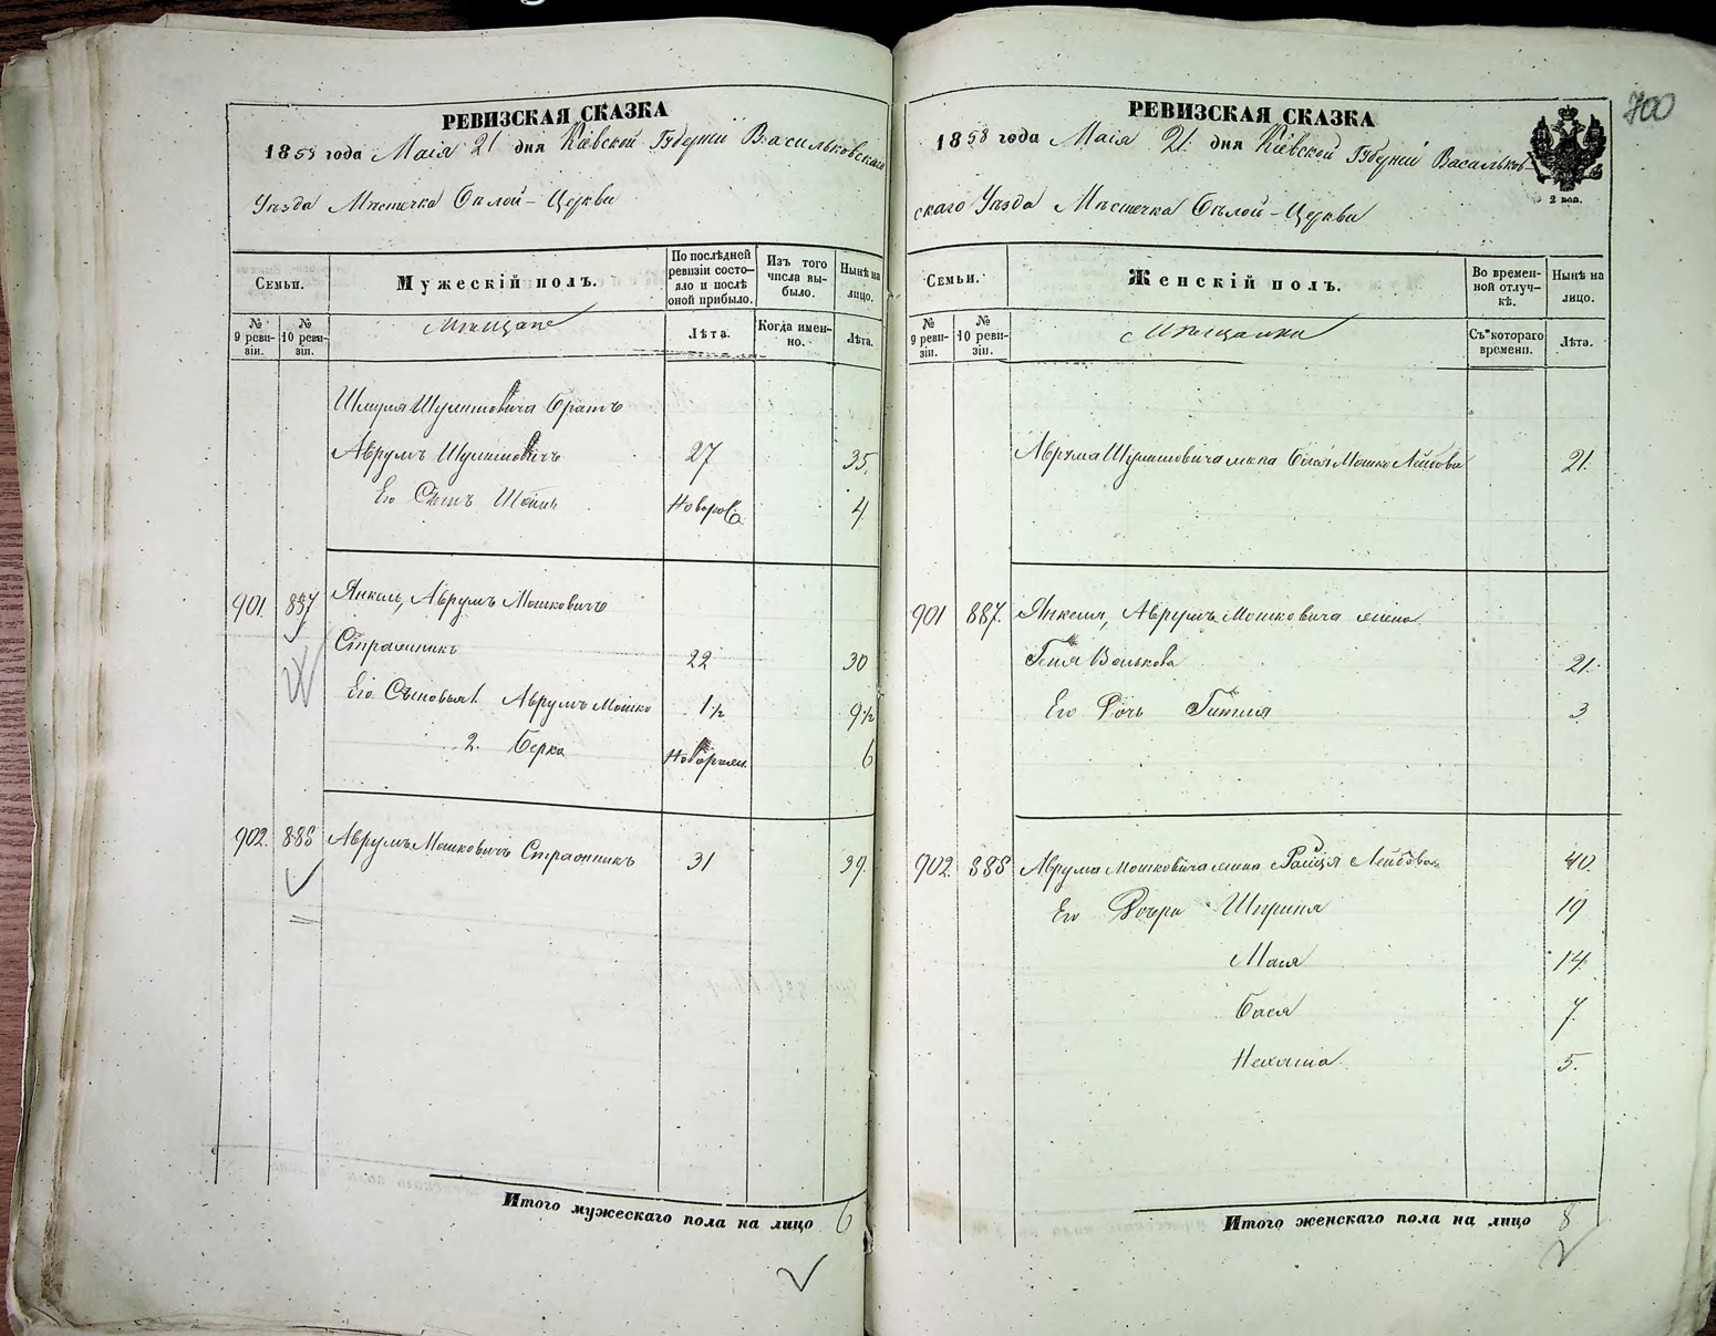 РЕВИЗСКАЯ СКАЗКА
1858 года Маія 21 дня Кіевской Губерніи Васильковскаго
Уѣзда Мѣстечка Бѣлой-Церкви
Семьи.
Мужескій полъ.
По послѣдней ревизіи состояло и послѣ оной прибыло.
Изъ того числа выбыло.
Нынѣ на лицо.
№ 9 ревизіи.
№ 10 ревизіи.
Мѣщане
Лѣта.
Когда именно.
Лѣта.
Шмуля Шулимовича братъ
Аврумъ Шулимовичъ 27 35.
Его Сынъ 4
901. 887 Янкель, Аврумъ Мошковичъ
22 30
Его Сыновья 1. Аврумъ Мошко 1½ 9½
2. Берко Новорожд. 6
902. 888 Аврумъ Мошковичъ 31 39.
Итого мужескаго пола на лицо 6
700
РЕВИЗСКАЯ СКАЗКА
1858 года Маія 21 дня Кіевской Губерніи Васильков-
скаго Уѣзда Мѣстечка Бѣлой-Церкви
2 коп.
Семьи.
Женскій полъ.
Во временной отлучкѣ.
Нынѣ на лицо.
№ 9 ревизіи.
№ 10 ревизіи.
Мѣщанки
Съ котораго времени.
Лѣта.
Аврума Шулимовича жена Бася Мошко Лейбова 21.
901 887. Янкеля, Аврумъ Мошковича жена
Волькова 21.
Его Дочь Гитля 3
902. 888 Аврума Мошковича жена Лейбова 40.
Его Дочери Ширина 19
Мася 14
Бася 7
Нехама 5.
Итого женскаго пола на лицо 8